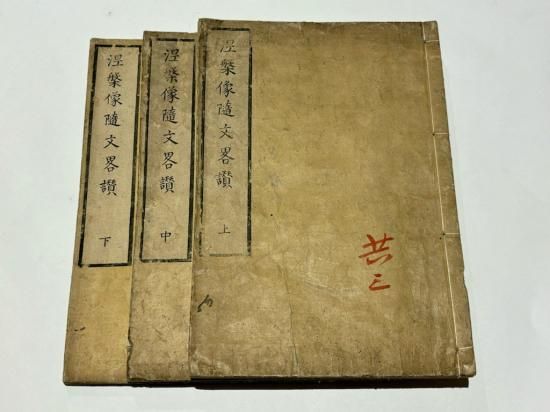 涅槃像隨文畧讃 上
共三
涅槃像隨文畧讃 中
涅槃像隨文畧讃 下